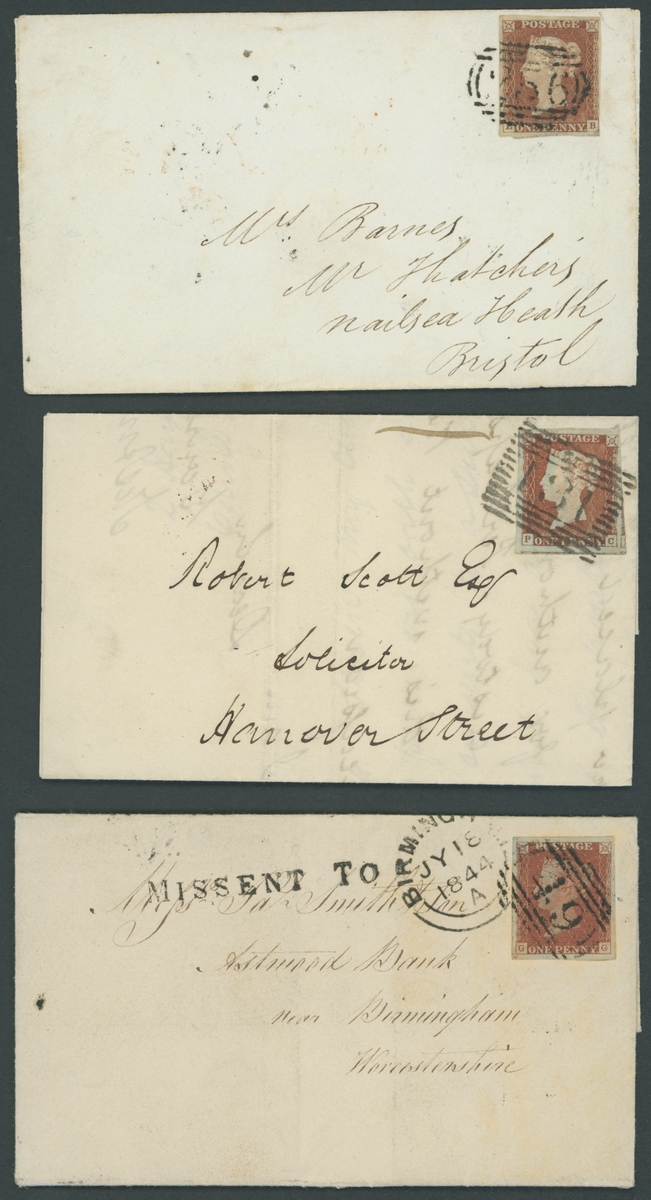 POSTAGE
ONE PENNY
B
Mrs. Barnes
Mr Thatchers
nailsea Heath
Bristol
POSTAGE
P ONE PENNY C
Robert Scott Esq
Solicitor
Hanover Street
MISSENT TO
BIRMING
JY 18
1844
A
POSTAGE
G ONE PENNY G
Smith
Astwood Bank
near Birmingham
Worcestershire